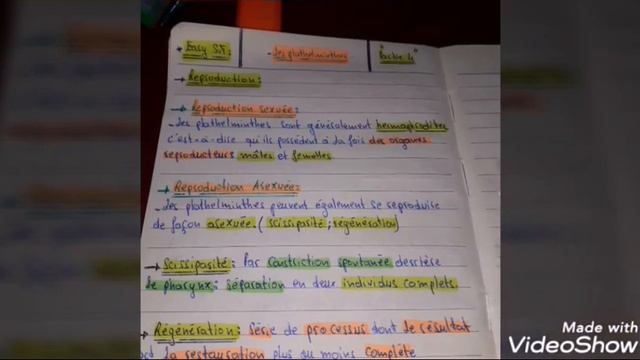 → Easy SN: - Les plathelminthes "Partie 4"
→ Reproduction:
→ Reproduction sexuée:
- Les plathelminthes sont généralement hermaphrodites
c'est-à-dire qu'ils possèdent à la fois des organes
reproducteurs mâles et femelles
→ Reproduction Asexuée:
- Les plathelminthes peuvent également se reproduire
de façon asexuée. (scissiparité; régénération)
→ Scissiparité: Par constriction spontanée derrière
le pharynx: séparation en deux individus complets.
→ Régénération: série de processus dont le résultat
la restauration plus ou moins complète
Made with
VideoShow